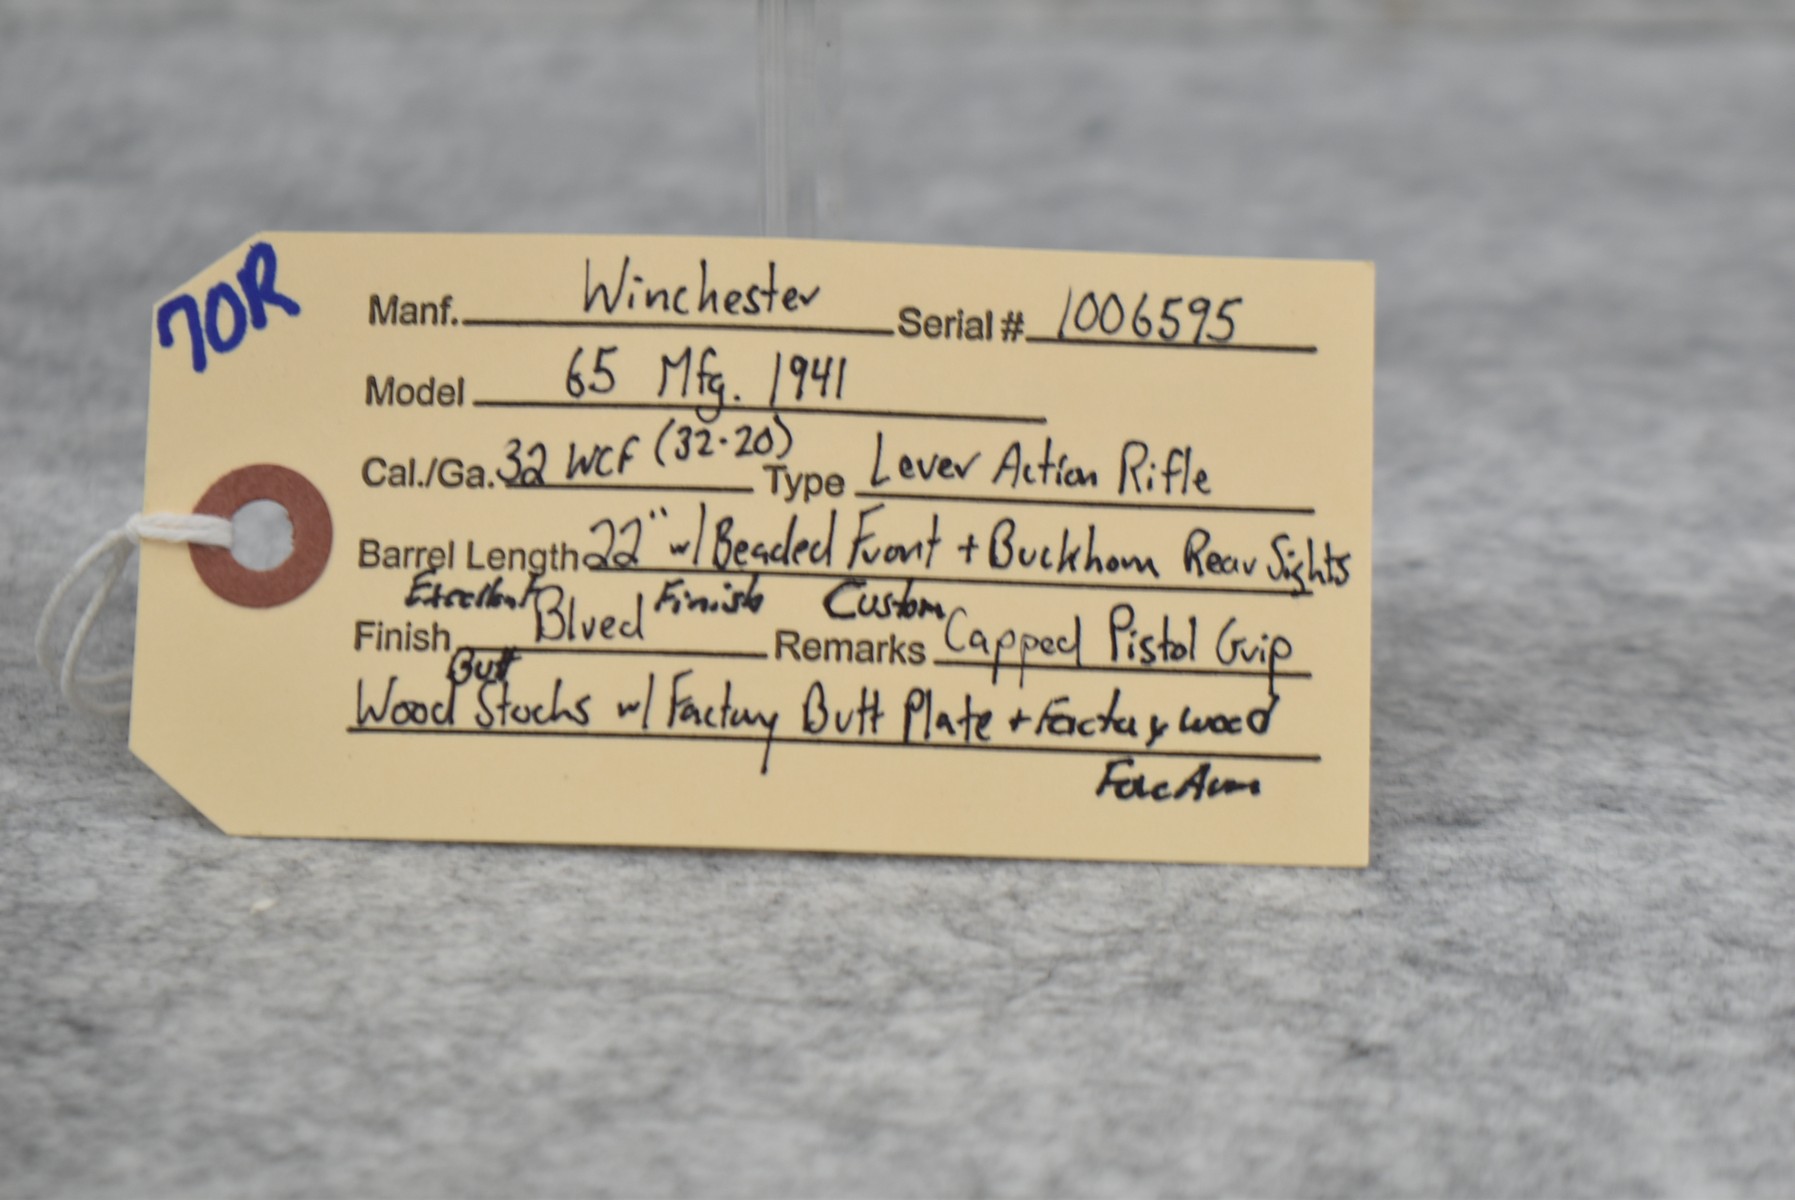 70R
Manf. Winchester Serial # 1006595
Model 65 Mfg. 1941
Cal./Ga. 32 WCF (32-20) Type Lever Action Rifle
Barrel Length 22" w/ Beaded Front + Buckhorn Rear Sights
Excellent Finish Custom
Finish Blued Remarks Capped Pistol Grip
Butt
Wood Stocks w/ Factory Butt Plate + Factory wood
ForeArm